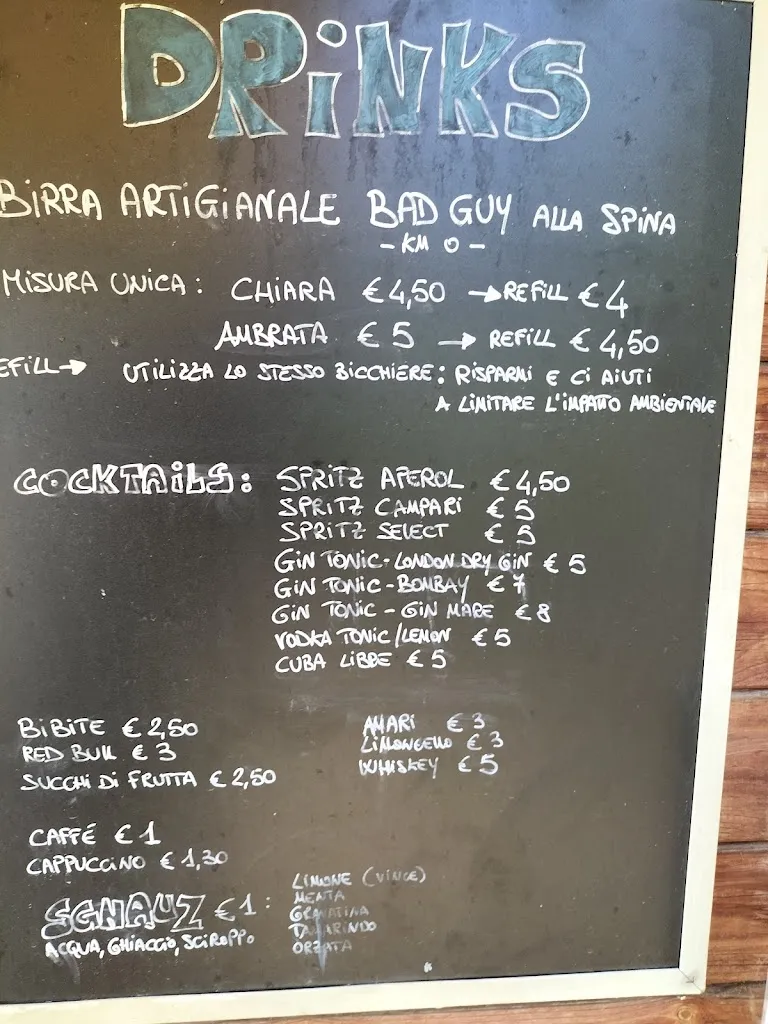 DRINKS
BIRRA ARTIGIANALE BAD GUY ALLA SPINA
- KM 0 -
MISURA UNICA: CHIARA € 4,50 → REFILL € 4
AMBRATA € 5 → REFILL € 4,50
EFILL → UTILIZZA LO STESSO BICCHIERE: RISPARMI E CI AIUTI
A LIMITARE L'IMPATTO AMBIENTALE
COCKTAILS: SPRITZ APEROL € 4,50
SPRITZ CAMPARI € 5
SPRITZ SELECT € 5
GIN TONIC-LONDON DRY GIN € 5
GIN TONIC-BOMBAY € 7
GIN TONIC - GIN MARE € 8
VODKA TONIC/LEMON € 5
CUBA LIBRE € 5
BIBITE € 2,50
RED BULL € 3
SUCCHI DI FRUTTA € 2,50
AMARI € 3
LIMONCELLO € 3
WHISKEY € 5
CAFFÉ € 1
CAPPUCCINO € 1,30
SGNAUZ € 1:
ACQUA, GHIACCIO, SCIROPPO
LIMONE (VINCE)
MENTA
GRANATINA
TAMARINDO
ORZATA